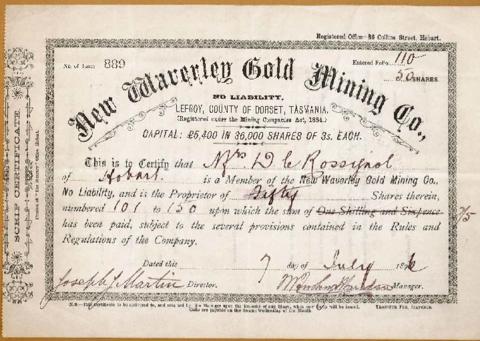 Registered Office- 88 Collins Street, Hobart.
No. of Scrip 889
Entered Folio 110
50 SHARES
New Waverley Gold Mining Co.,
NO LIABILITY,
LEFROY, COUNTY OF DORSET, TASMANIA.
(Registered under the Mining Companies Act, 1884.)
CAPITAL: £5,400 IN 36,000 SHARES OF 3s. EACH.
SCRIP CERTIFICATE
This is to Certify that Mrs D C Rossignol
of Hobart is a Member of the New Waverley Gold Mining Co.,
No Liability, and is the Proprietor of Fifty Shares therein,
numbered 101 to 150 upon which the sum of One Shilling and Sixpence
has been paid, subject to the several provisions contained in the Rules and
Regulations of the Company.
Dated this 7 day of July
Joseph J Martin Director. Manager.